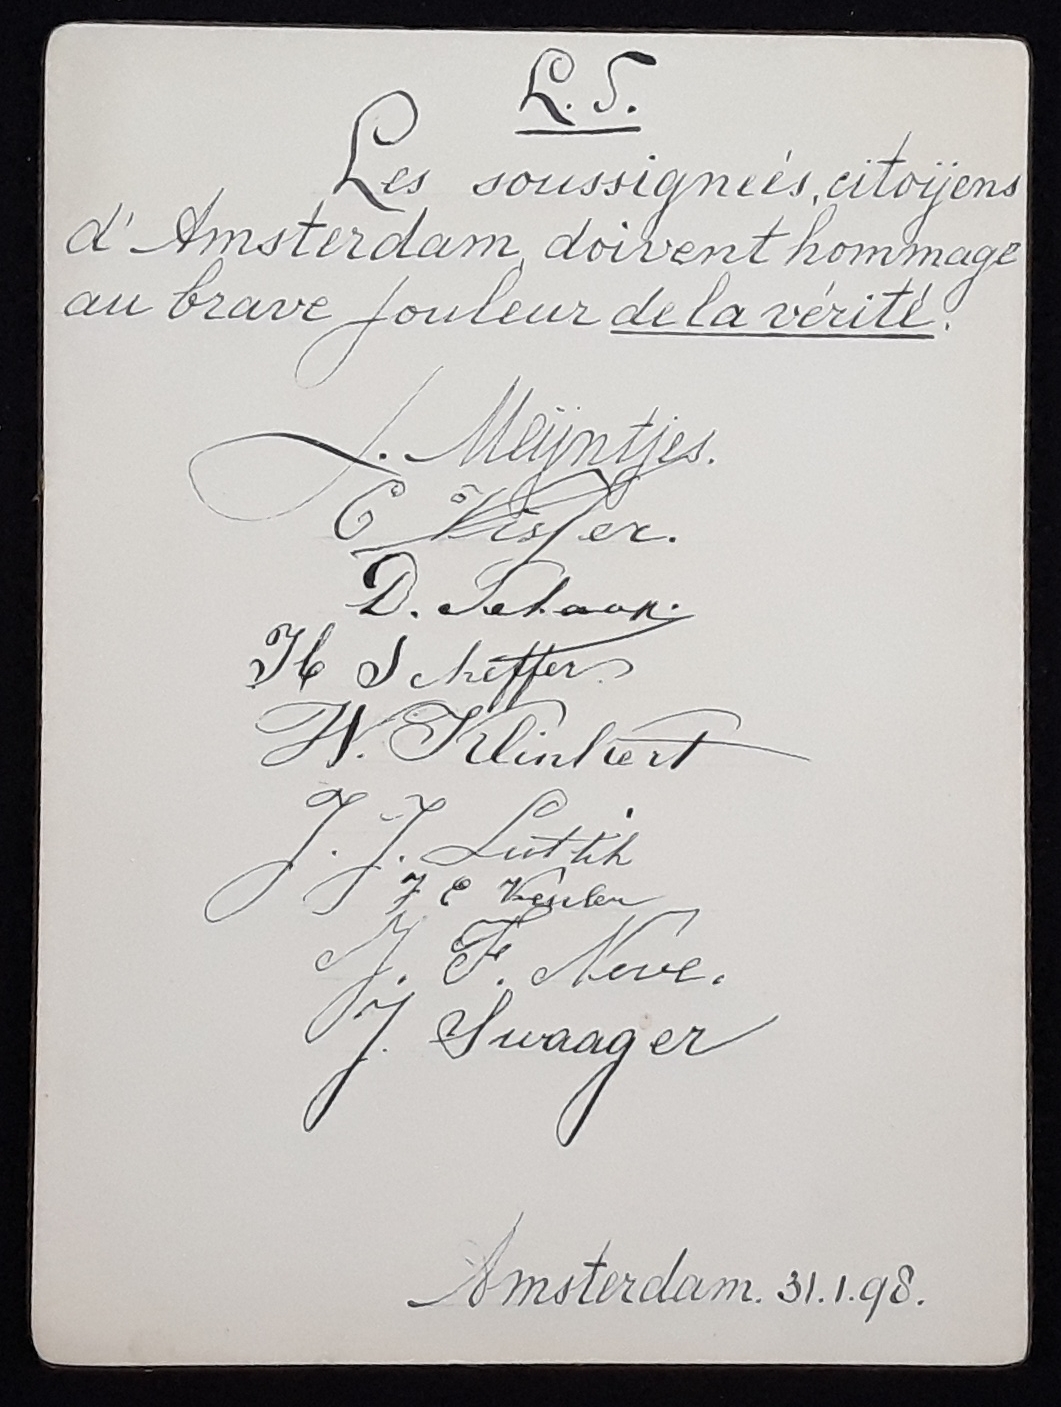 L. S.
Les soussigneés, citoÿens
d'Amsterdam, doivent hommage
au brave jouleur de la vérité.
J. Meÿntjes.
C Visser.
D. Schaap.
H Scheffer.
W. Klinkert
J. J. Luttik
J. F. Neve.
J. Swaager
Amsterdam. 31.1.98.